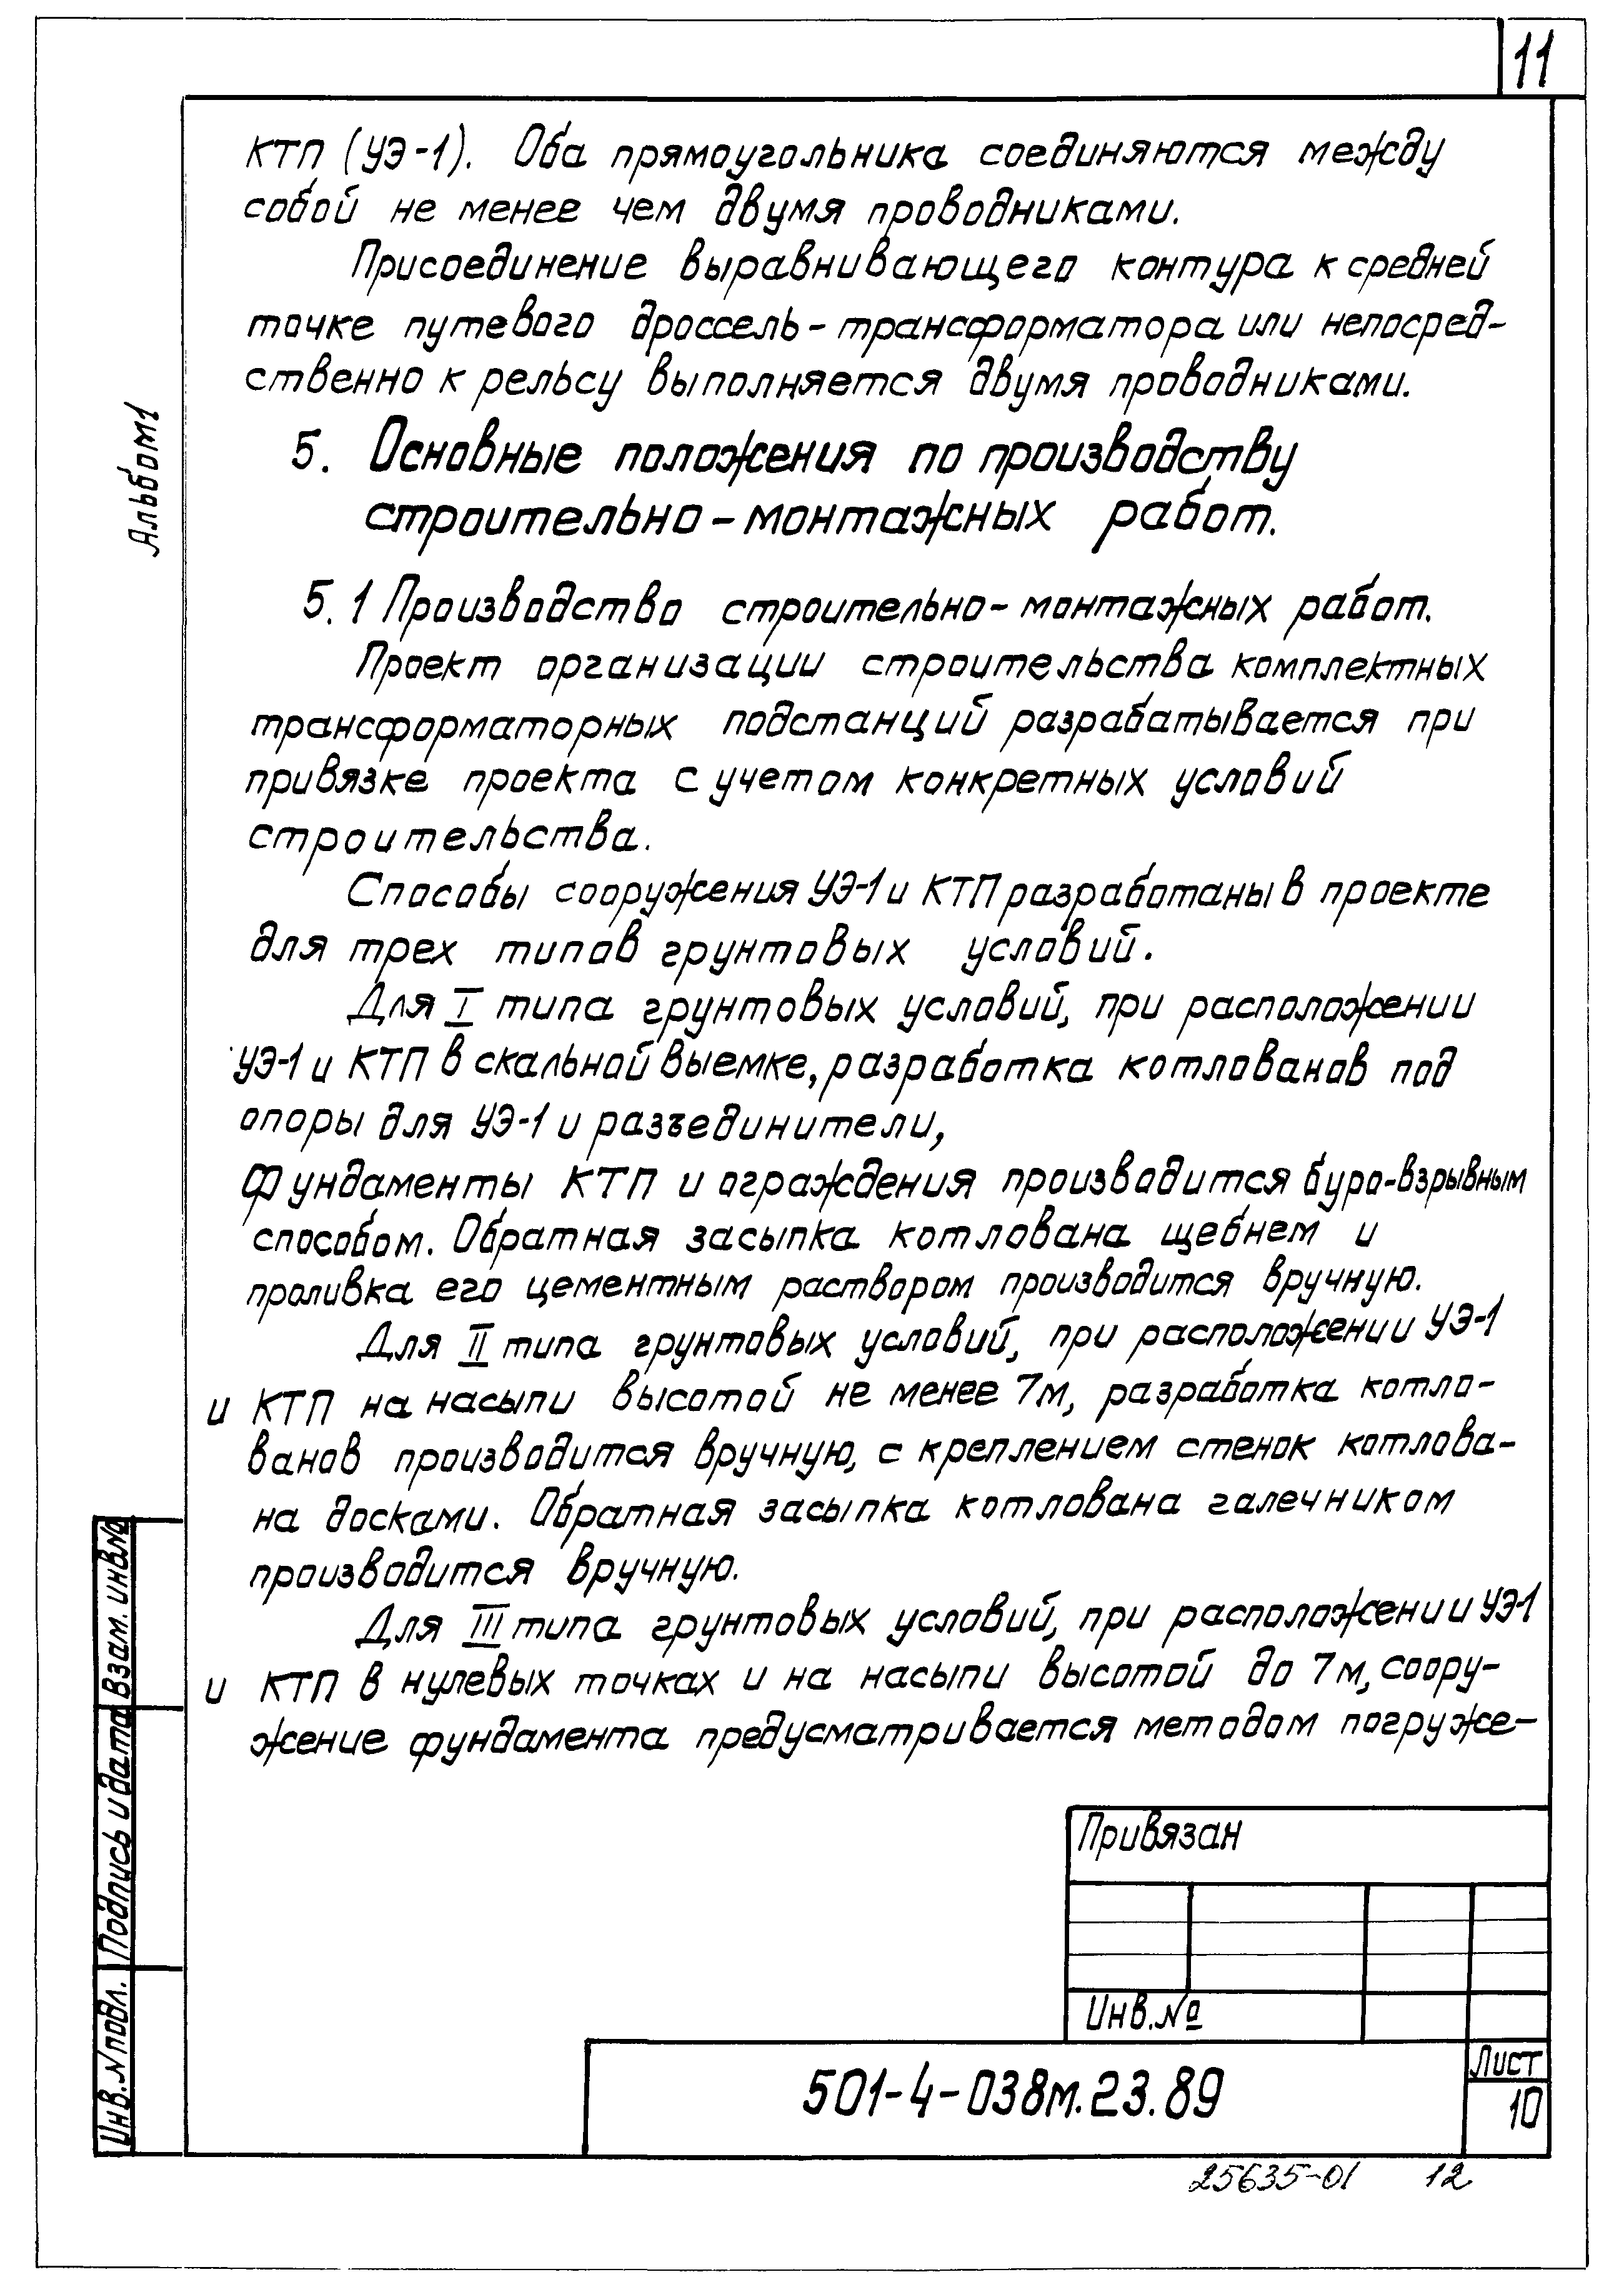 11
КТП (УЭ-1). Оба прямоугольника соединяются между
собой не менее чем двумя проводниками.
Присоединение выравнивающего контура к средней
точке путевого дроссель-трансформатора или непосред-
ственно к рельсу выполняется двумя проводниками.
Альбом1
5. Основные положения по производству
строительно-монтажных работ.
5.1 Производство строительно-монтажных работ.
Проект организации строительства комплектных
трансформаторных подстанций разрабатывается при
привязке проекта с учетом конкретных условий
строительства.
Способы сооружения УЭ-1 и КТП разработаны в проекте
для трех типов грунтовых условий.
Для I типа грунтовых условий, при расположении
УЭ-1 и КТП в скальной выемке, разработка котлованов под
опоры для УЭ-1 и разъединители,
фундаменты КТП и ограждения производится буро-взрывным
способом. Обратная засыпка котлована щебнем и
проливка его цементным раствором производится вручную.
Для II типа грунтовых условий, при расположении УЭ-1
и КТП на насыпи высотой не менее 7м, разработка котло-
ванов производится вручную, с креплением стенок котлова-
на досками. Обратная засыпка котлована галечником
производится вручную.
Для III типа грунтовых условий, при расположении УЭ-1
и КТП в нулевых точках и на насыпи высотой до 7м, соору-
жение фундамента предусматривается методом погруже-
Взам. инв№
Подпись и дата
Инв.№подл.
Привязан
Инв.№
501-4-038м.23.89
Лист
10
25635-01 12